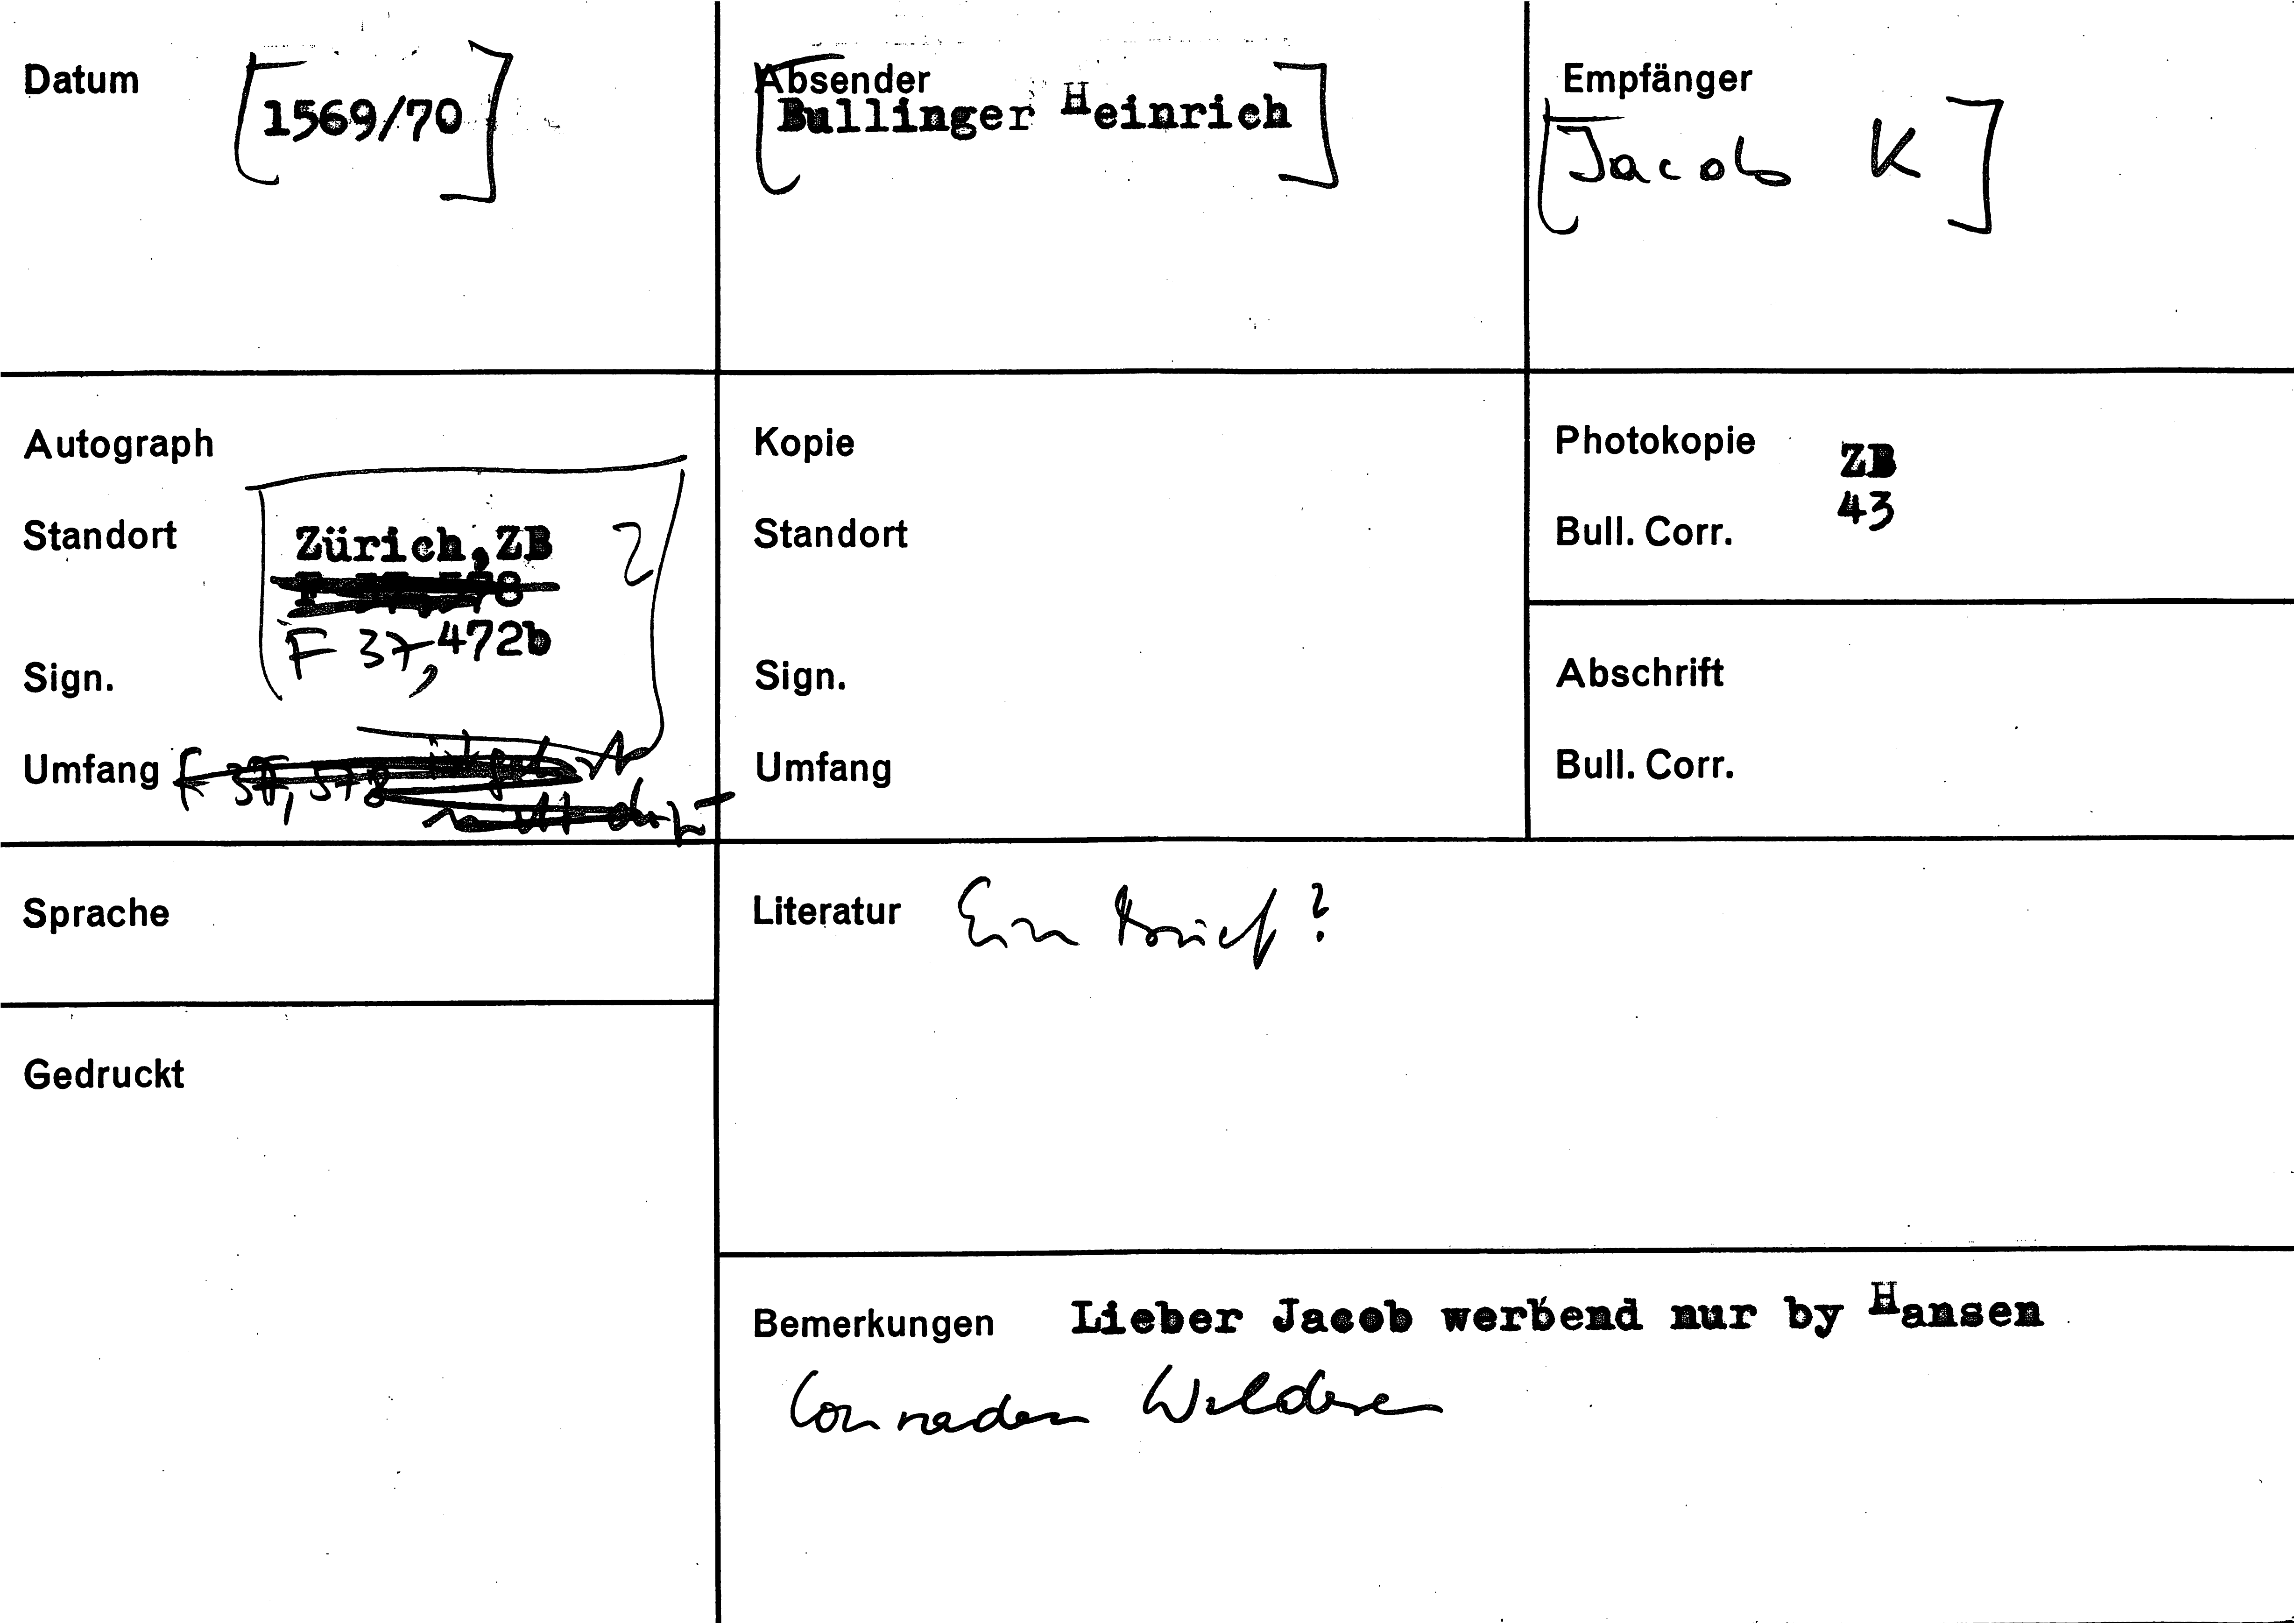 Datum [1569/70]
Absender
[Bullinger Heinrich]
Empfänger
[Jacob K]
Autograph
Standort Zürich, ZB ?
F 37, 472b
Sign.
Umfang F 37, 378
Kopie
Standort
Sign.
Umfang
Photokopie ZB
43
Bull. Corr.
Abschrift
Bull. Corr.
Sprache
Literatur Ein Brief?
Gedruckt
Bemerkungen Lieber Jacob werbend nur by Hansen
Conraden Wilderen